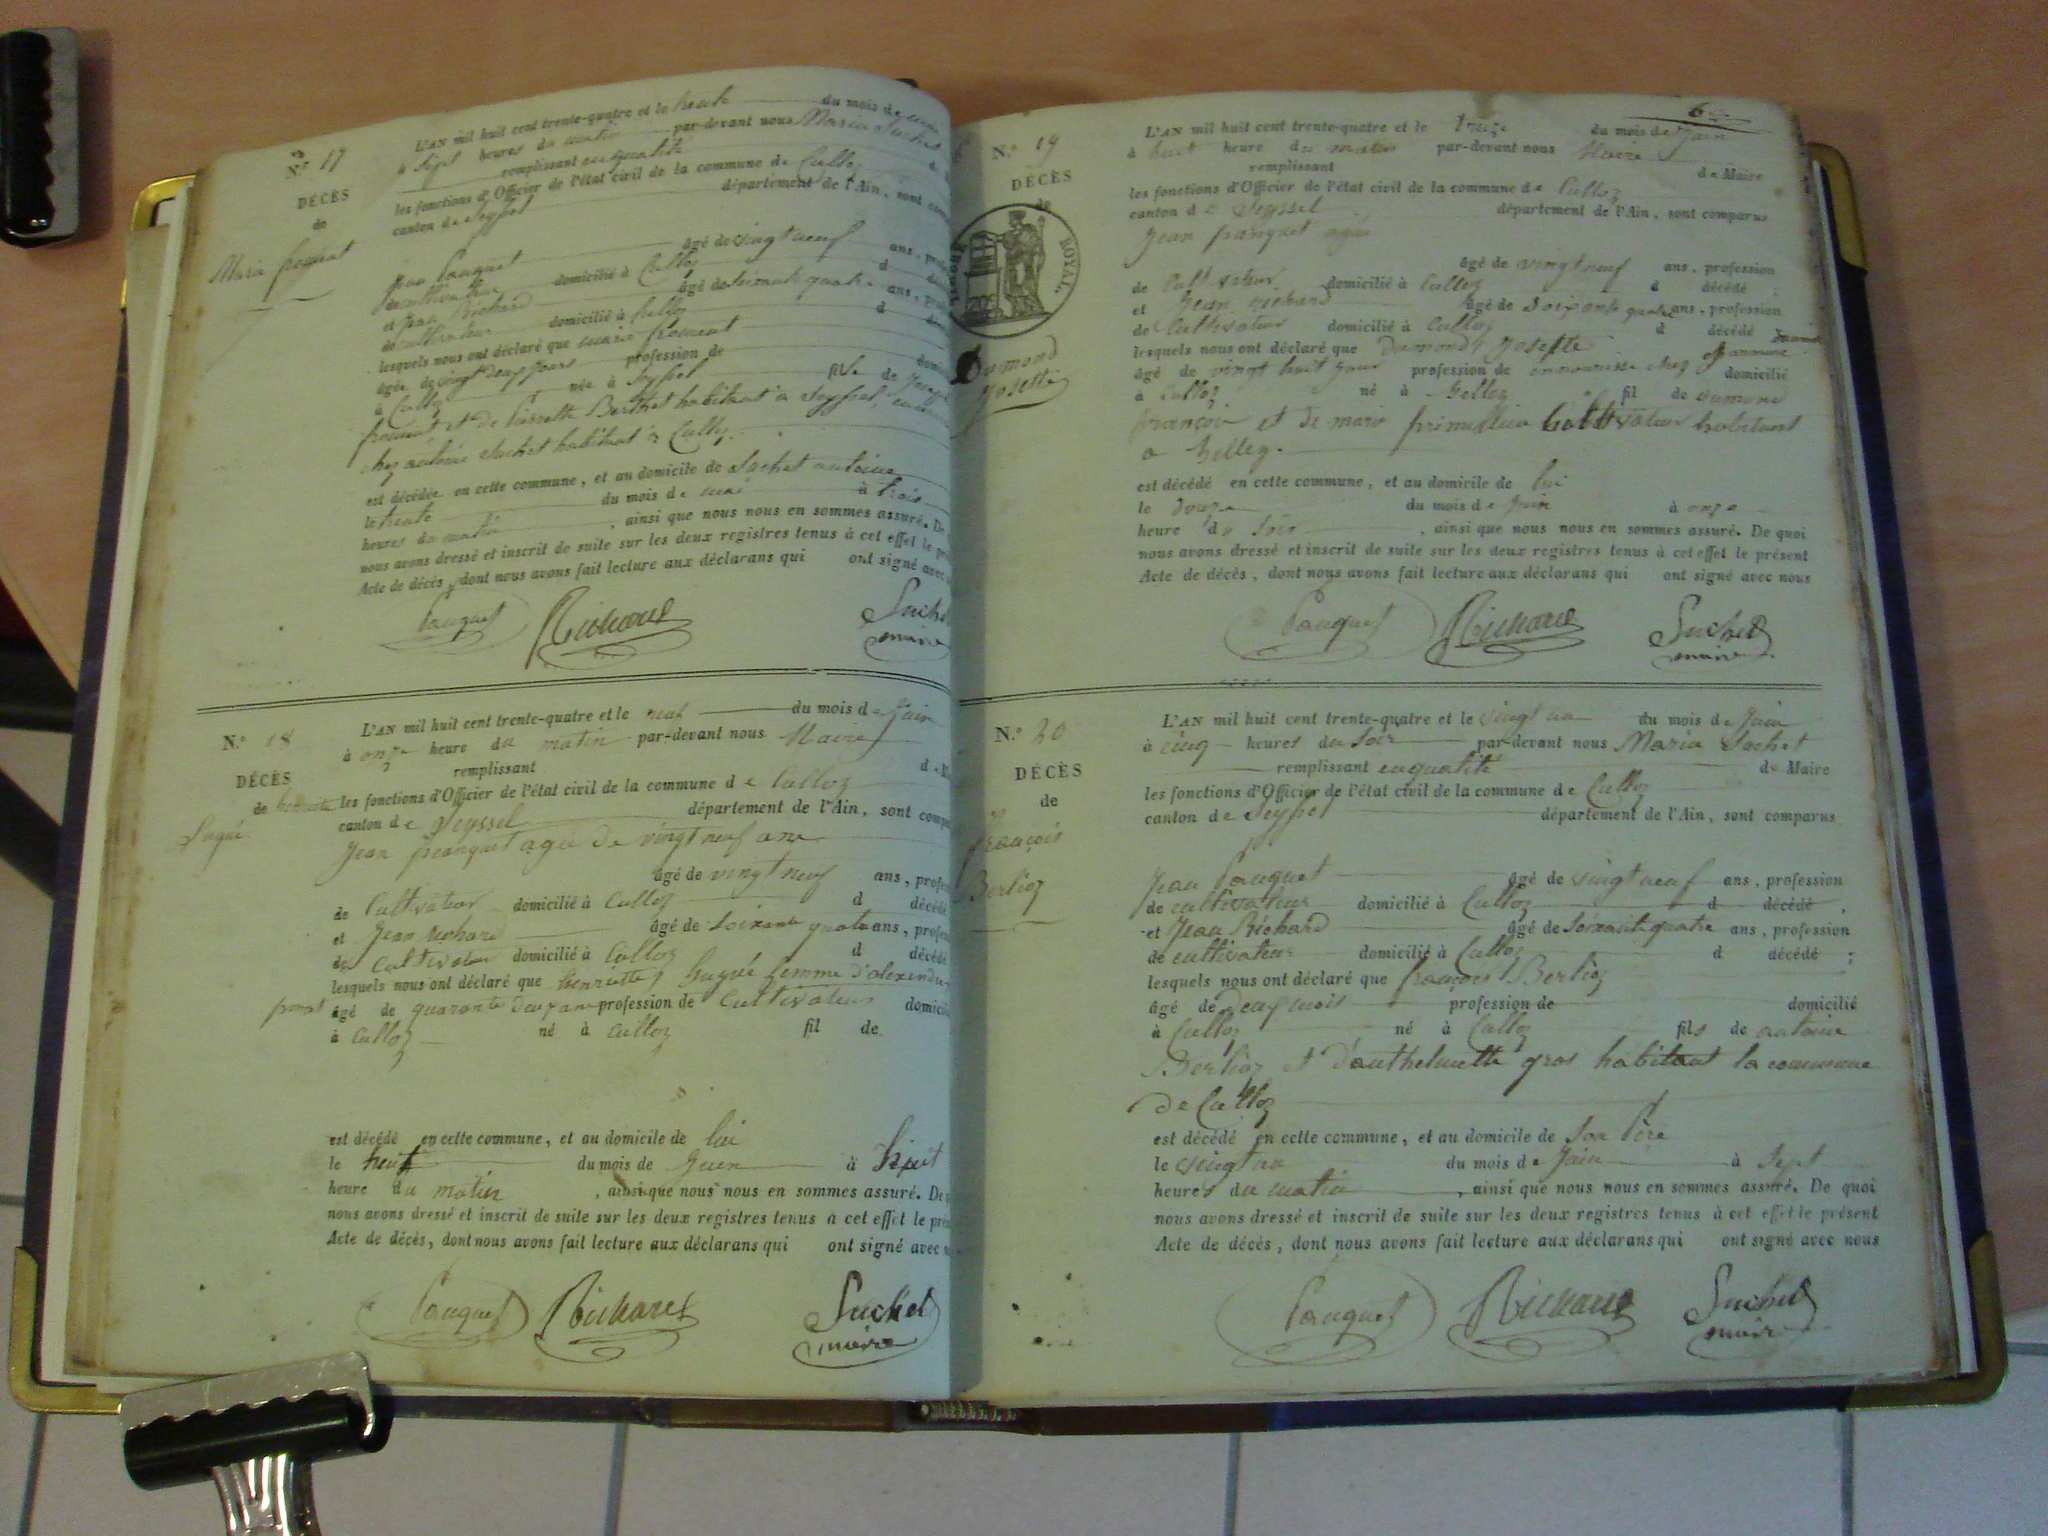 N.° 17
DÉCÈS
de
Marie froment
L'AN mil huit cent trente-quatre et le trente du mois de mai
à Sept heures du matin par-devant nous Maria Suchet
remplissant enqualité
les fonctions d'Officier de l'état civil de la commune de Culloz
canton de Seyssel département de l'Ain, sont
Jean Pauquet âgé de vingt neuf ans,
de cultivateur domicilié à Culloz d
et Jean Richard âgé de soixante quatre ans,
de cultivateur domicilié à Culloz d
lesquels nous ont déclaré que marie froment
âgée de vingt deux jours profession de
à Culloz née à Seyssel fille de Joseph
froment et de Pierrette Berthet habitant à Seyssel,
chez antoine Suchet habitant à Culloz.
est décédée en cette commune, et au domicile de Suchet antoine
le trente du mois de mai à trois
heures du matin, ainsi que nous nous en sommes assuré. De
nous avons dressé et inscrit de suite sur les deux registres tenus à cet effet le
Acte de décès, dont nous avons fait lecture aux déclarans qui ont signé avec
Pauquet Richard Suchet
maire
N.° 18
DÉCÈS
de henriette
hugué
L'AN mil huit cent trente-quatre et le neuf du mois de Juin
à onze heure du matin par-devant nous Maire
remplissant
les fonctions d'Officier de l'état civil de la commune de Culloz
canton de Seyssel département de l'Ain, sont
Jean pauquet agé de vingt neuf ans
âgé de vingt neuf ans,
de Cultivateur domicilié à Culloz d décédé
et Jean richard âgé de soixante quatre ans,
de Cultivateur domicilié à Culloz d décédé
lesquels nous ont déclaré que henriette hugué femme d'alexandre
âgé de quarante deux ans profession de Cultivateur
à Culloz né à Culloz fil de
est décédé en cette commune, et au domicile de lui
le neuf du mois de Juin à huit
heure du matin, ainsi que nous nous en sommes assuré. De
nous avons dressé et inscrit de suite sur les deux registres tenus à cet effet le
Acte de décès, dont nous avons fait lecture aux déclarans qui ont signé avec
Pauquet Richard Suchet
maire
N.° 19
DÉCÈS
de
ROYAL.
Dumond
Josette
L'AN mil huit cent trente-quatre et le treize du mois de Juin
à huit heure du matin par-devant nous Maire
remplissant de Maire
les fonctions d'Officier de l'état civil de la commune de Culloz
canton de Seyssel département de l'Ain, sont comparus
Jean pauquet agé
âgé de vingt neuf ans, profession
de Cultivateur domicilié à Culloz d décédé
et Jean richard âgé de soixante quatre ans, profession
de Cultivateur domicilié à Culloz d décédé
lesquels nous ont déclaré que Dumond Josette
âgé de vingt huit jour profession de en nourisse chez domicilié
à Culloz né à Belley fil de dumond
françois et de marie Cultivateur habitant
a Belley.
est décédé en cette commune, et au domicile de lui
le douze du mois de Juin à onze
heure du soir, ainsi que nous nous en sommes assuré. De quoi
nous avons dressé et inscrit de suite sur les deux registres tenus à cet effet le présent
Acte de décès, dont nous avons fait lecture aux déclarans qui ont signé avec nous
Pauquet Richard Suchet
maire
N.° 20
DÉCÈS
de
françois
Berlioz
L'AN mil huit cent trente-quatre et le vingt un du mois de Juin
à cinq heures du soir par-devant nous Maria Suchet
remplissant enqualité de Maire
les fonctions d'Officier de l'état civil de la commune de Culloz
canton de Seyssel département de l'Ain, sont comparus
Jean Pauquet âgé de vingt neuf ans, profession
de cultivateur domicilié à Culloz d décédé,
et Jean Richard âgé de soixante quatre ans, profession
de cultivateur domicilié à Culloz d décédé;
lesquels nous ont déclaré que françois Berlioz
âgé de deux mois profession de domicilié
à Culloz né à Culloz fils de antoine
Berlioz et d'anthelmette gros habitant la commune
de Culloz
est décédé en cette commune, et au domicile de son Père
le vingt un du mois de Juin à sept
heures du matin, ainsi que nous nous en sommes assuré. De quoi
nous avons dressé et inscrit de suite sur les deux registres tenus à cet effet le présent
Acte de décès, dont nous avons fait lecture aux déclarans qui ont signé avec nous
Pauquet Richard Suchet
maire